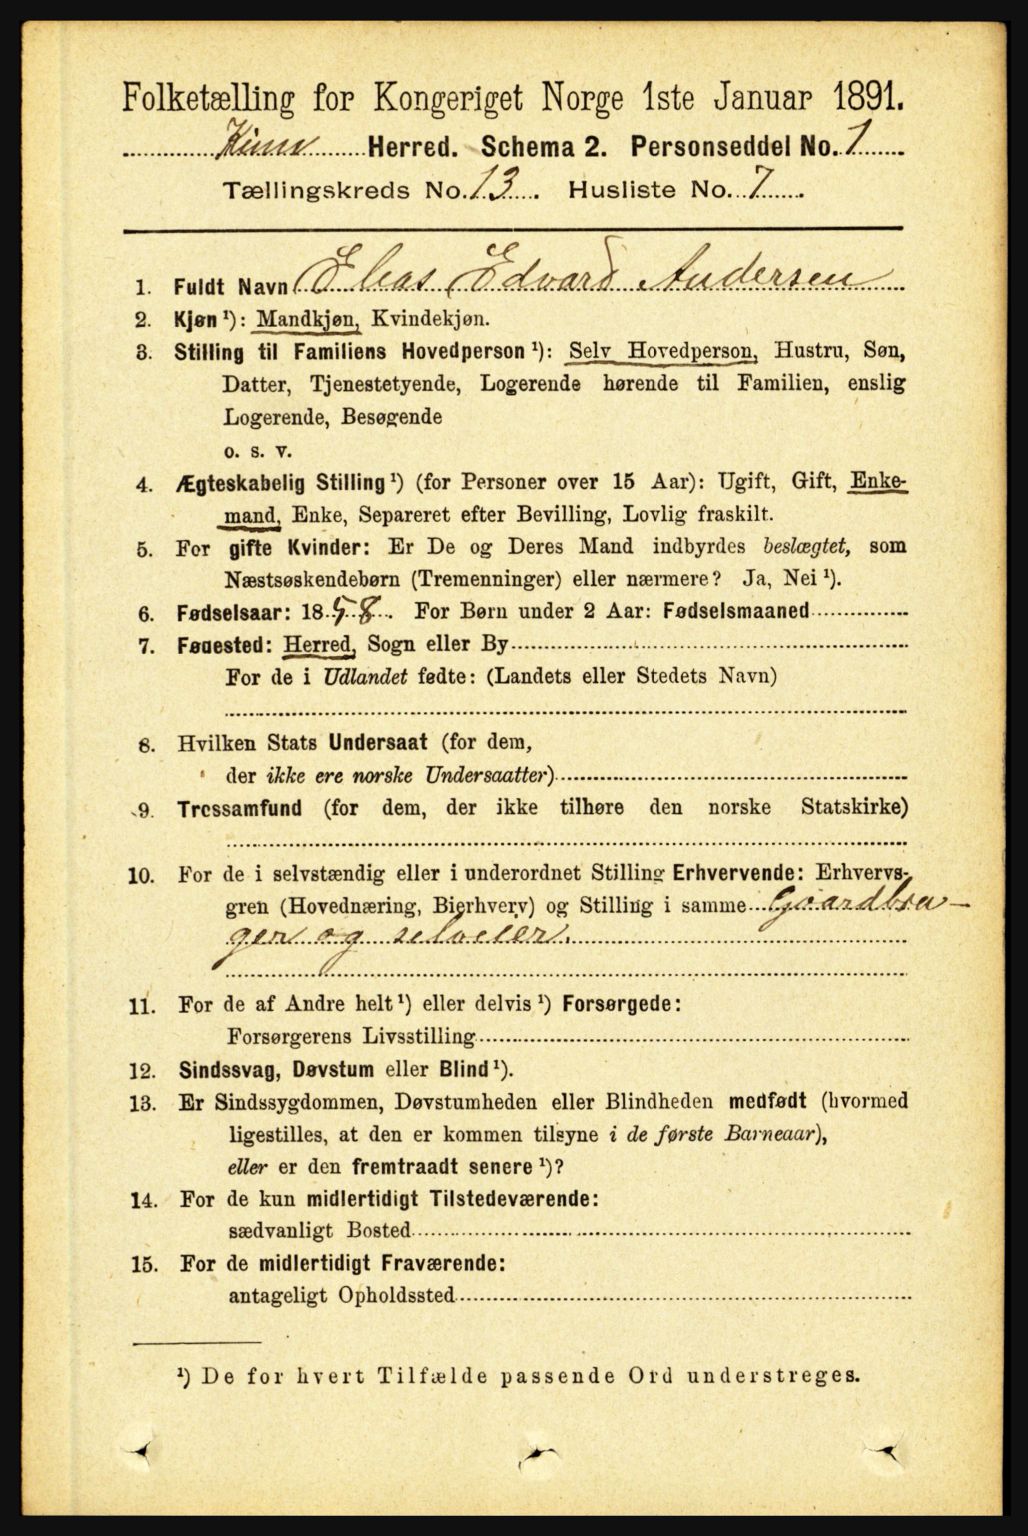 Folketælling for Kongeriget Norge 1ste Januar 1891.
Kinn Herred. Schema 2. Personseddel No. 1
Tællingskreds No. 13. Husliste No. 7.
1. Fuldt Navn Elias Edvard Andersen
2. Kjøn ¹): Mandkjøn, Kvindekjøn.
3. Stilling til Familiens Hovedperson ¹): Selv Hovedperson, Hustru, Søn,
Datter, Tjenestetyende, Logerende hørende til Familien, enslig
Logerende, Besøgende
o. s. v.
4. Ægteskabelig Stilling ¹) (for Personer over 15 Aar): Ugift, Gift, Enke-
mand, Enke, Separeret efter Bevilling, Lovlig fraskilt.
5. For gifte Kvinder: Er De og Deres Mand indbyrdes beslægtet, som
Næstsøskendebørn (Tremenninger) eller nærmere? Ja, Nei ¹).
6. Fødselsaar: 1858. For Børn under 2 Aar: Fødselsmaaned
7. Fødested: Herred, Sogn eller By
For de i Udlandet fødte: (Landets eller Stedets Navn)
8. Hvilken Stats Undersaat (for dem,
der ikke ere norske Undersaatter)
9. Trossamfund (for dem, der ikke tilhøre den norske Statskirke)
10. For de i selvstændig eller i underordnet Stilling Erhvervende: Erhvervs-
gren (Hovednæring, Bierhverv) og Stilling i samme Gaardbru-
ger og selveier.
11. For de af Andre helt ¹) eller delvis ¹) Forsørgede:
Forsørgerens Livsstilling
12. Sindssvag, Døvstum eller Blind ¹).
13. Er Sindssygdommen, Døvstumheden eller Blindheden medfødt (hvormed
ligestilles, at den er kommen tilsyne i de første Barneaar),
eller er den fremtraadt senere ¹)?
14. For de kun midlertidigt Tilstedeværende:
sædvanligt Bosted
15. For de midlertidigt Fraværende:
antageligt Opholdssted
¹) De for hvert Tilfælde passende Ord understreges.